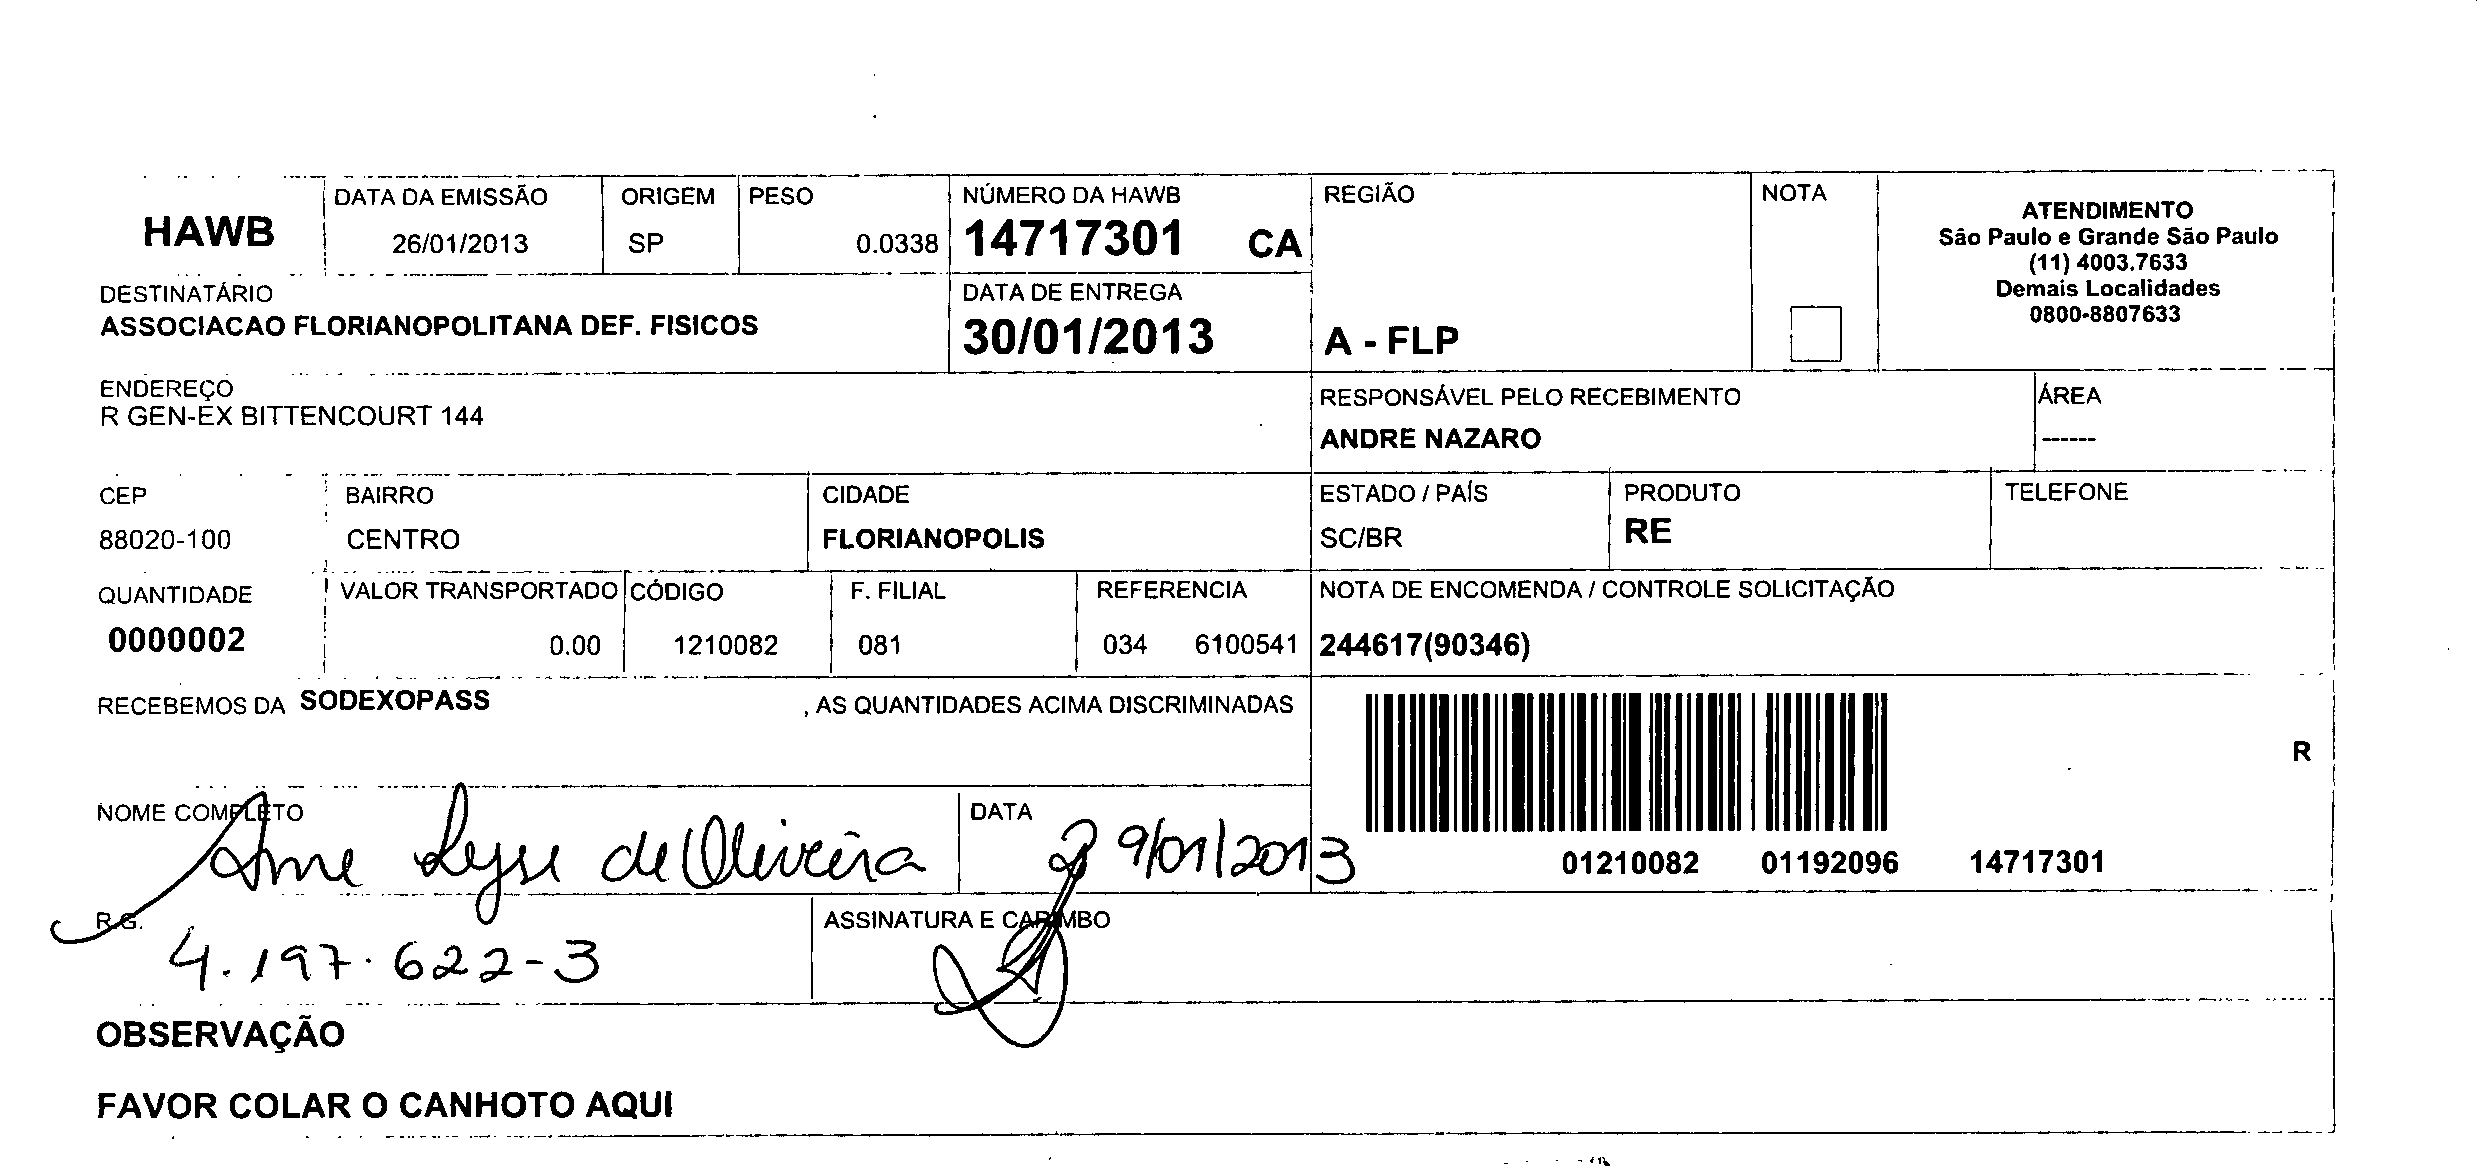 HAWB
DATA DA EMISSÃO
26/01/2013
ORIGEM
SP
PESO
0.0338
NÚMERO DA HAWB
14717301 CA
REGIÃO
A - FLP
NOTA
ATENDIMENTO
São Paulo e Grande São Paulo
(11) 4003.7633
Demais Localidades
0800-8807633
DESTINATÁRIO
ASSOCIACAO FLORIANOPOLITANA DEF. FISICOS
DATA DE ENTREGA
30/01/2013
ENDEREÇO
R GEN-EX BITTENCOURT 144
RESPONSÁVEL PELO RECEBIMENTO
ANDRE NAZARO
ÁREA
------
CEP
88020-100
BAIRRO
CENTRO
CIDADE
FLORIANOPOLIS
ESTADO / PAÍS
SC/BR
PRODUTO
RE
TELEFONE
QUANTIDADE
0000002
VALOR TRANSPORTADO
0.00
CÓDIGO
1210082
F. FILIAL
081
REFERENCIA
034 6100541
NOTA DE ENCOMENDA / CONTROLE SOLICITAÇÃO
244617(90346)
RECEBEMOS DA SODEXOPASS , AS QUANTIDADES ACIMA DISCRIMINADAS
R
01210082 01192096 14717301
NOME COMPLETO
de Oliveira
DATA
29/01/2013
R.G.
4.197.622-3
ASSINATURA E CARIMBO
OBSERVAÇÃO
FAVOR COLAR O CANHOTO AQUI